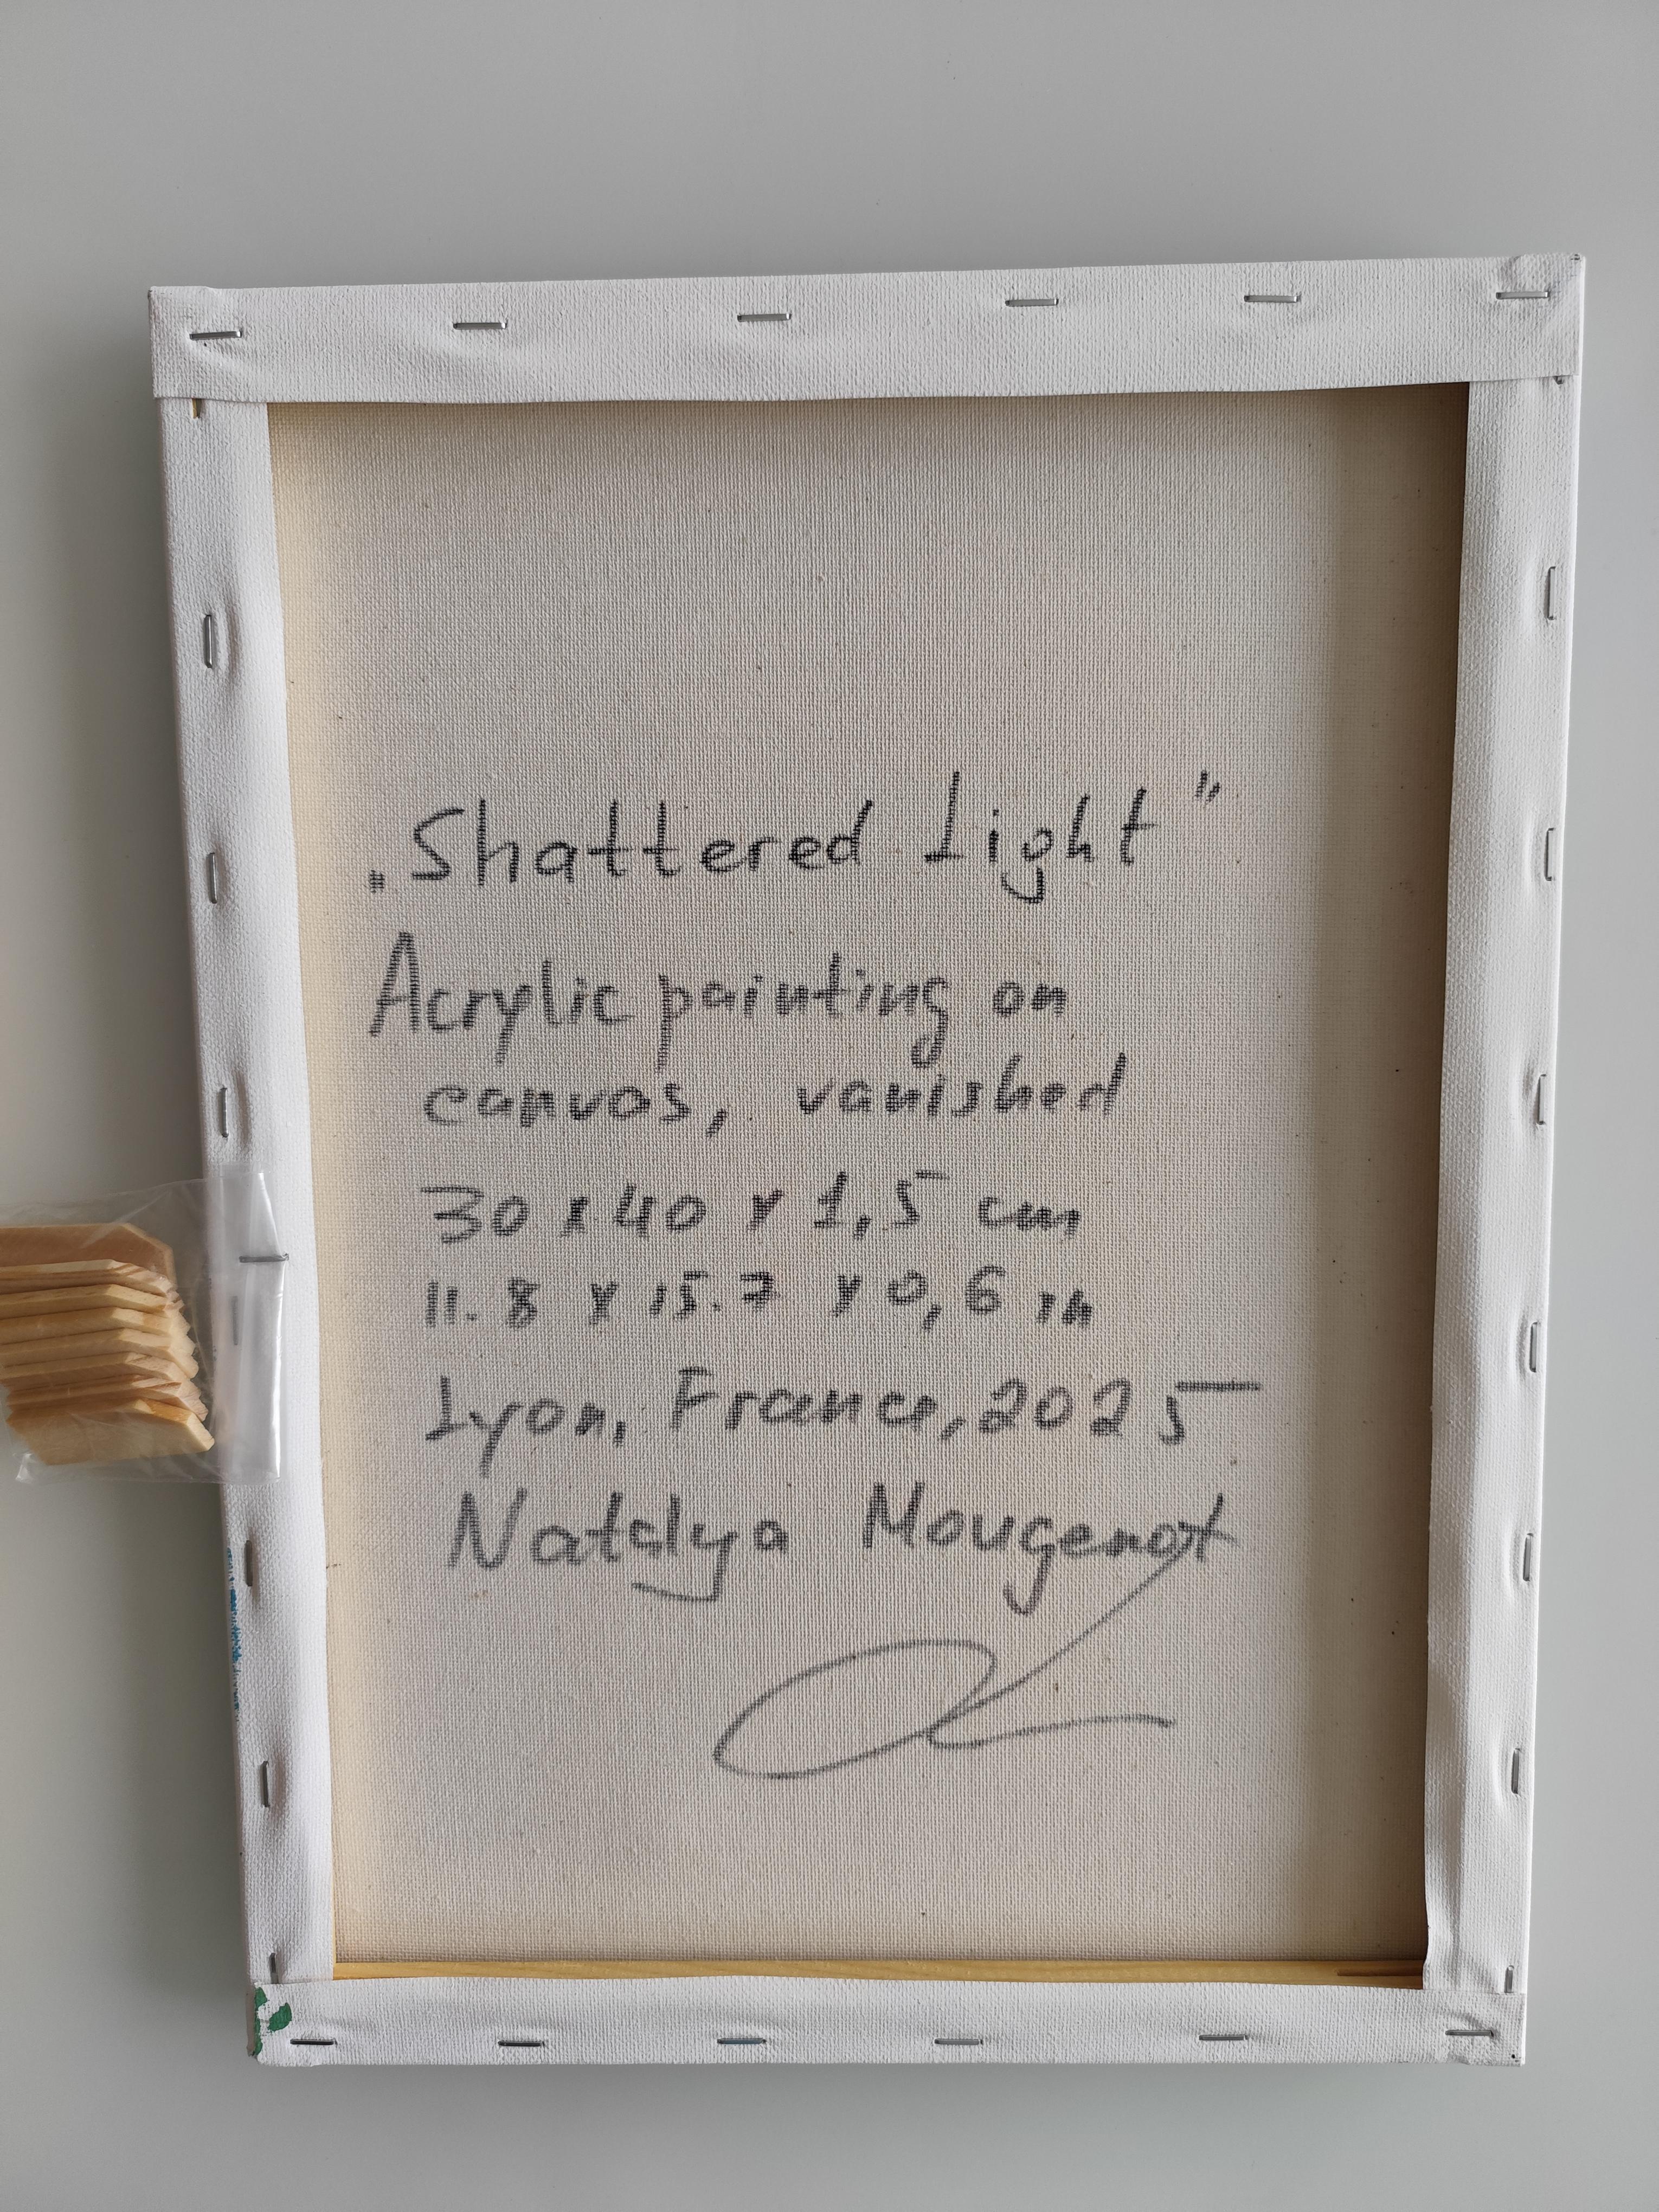 „Shattered Light"
Acrylic painting on
canvas, vanished
30 x 40 x 1,5 cm
11.8 x 15.7 x 0,6 in
Lyon, France, 2025
Natalya Mougenot